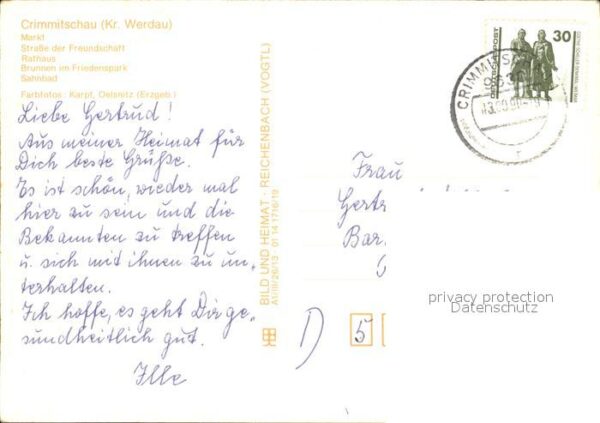 Crimmitschau (Kr. Werdau)
Markt
Straße der Freundschaft
Rathaus
Brunnen im Friedenspark
Sahnbad
Farbfotos: Karpf, Oelsnitz (Erzgeb.)
Liebe Gertrud!
Aus meiner Heimat für
Dich beste Grüße.
Es ist schön, wieder mal
hier zu sein und die
Bekannten zu treffen
u. sich mit ihnen zu un-
terhalten.
Ich hoffe, es geht Dir ge-
sundheitlich gut.
Ille
BILD UND HEIMAT · REICHENBACH (VOGTL)
A1/III/26/13 01 14 1716/19
30
DEUTSCHE POST
CRIMMITSCH
Frau
Gertr
Bar
D 5
privacy protection
Datenschutz